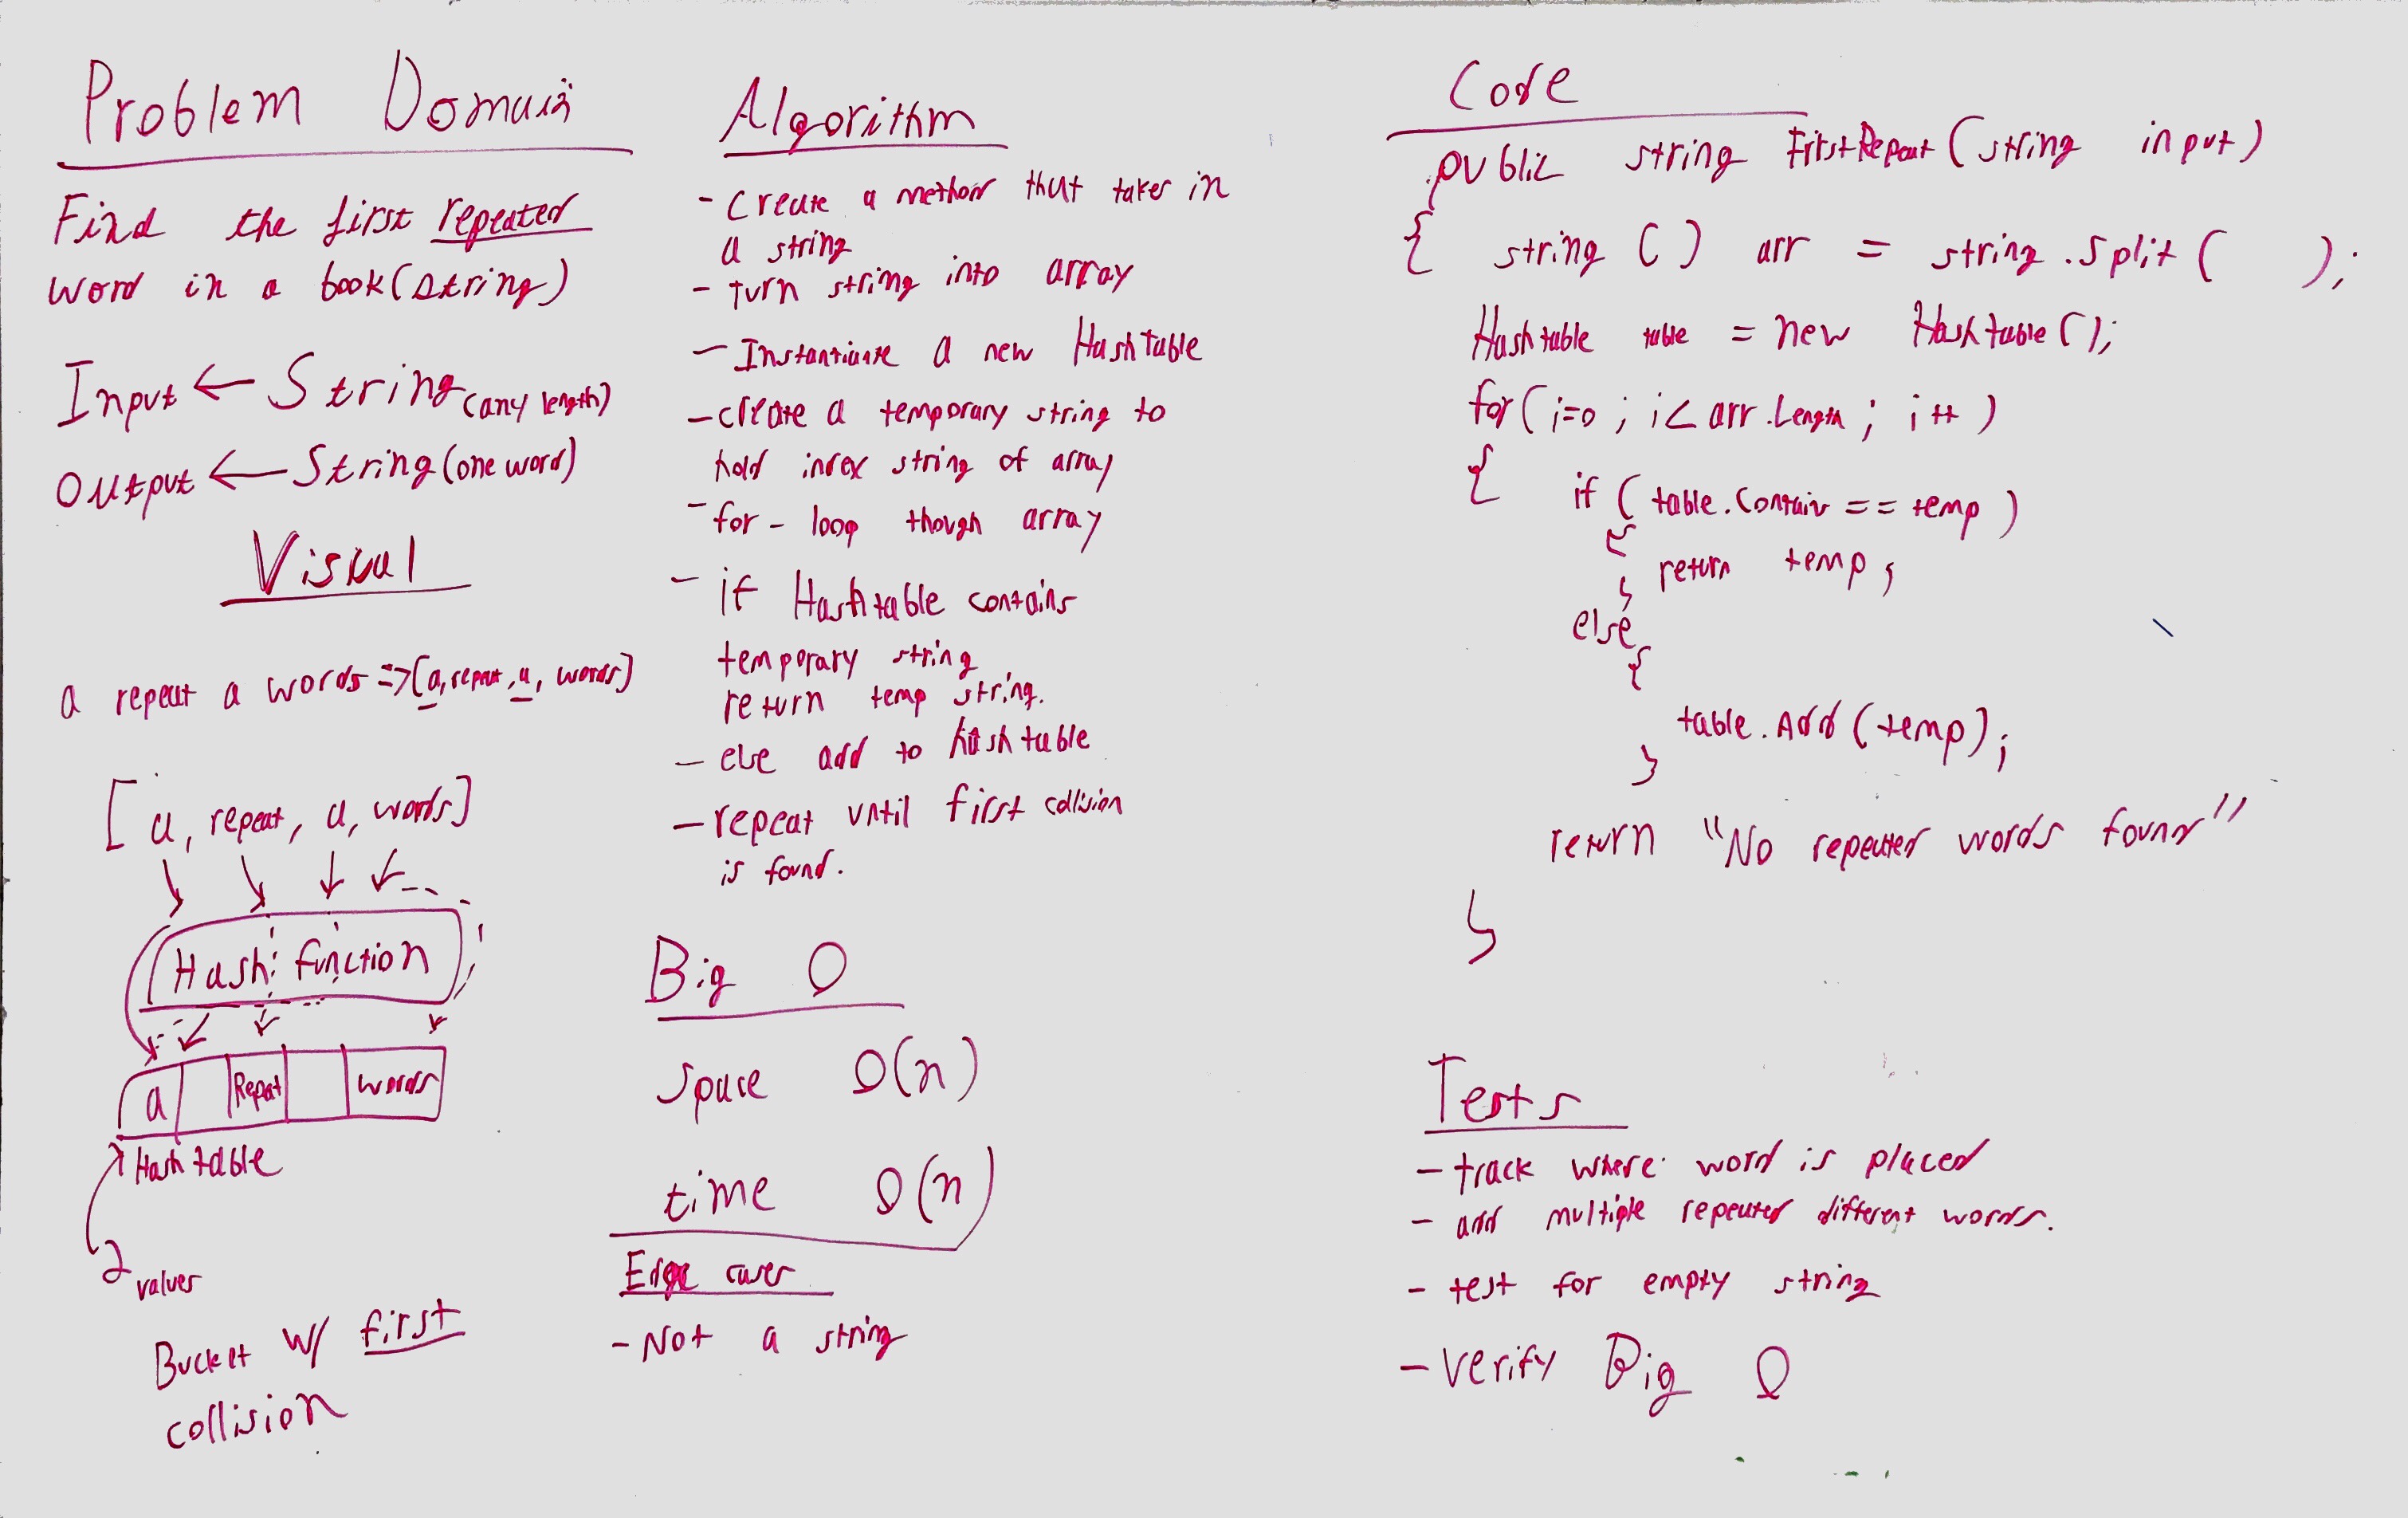 Problem Domain
Find the first repeated
word in a book (string)
Input ← String (any length)
Output ← String (one word)
Visual
a repeat a words => [a, repeat, a, words]
[a, repeat, a, words]
Hash function
a Repeat words
Hash table
2 values
Bucket w/ first
collision
Algorithm
- Create a method that takes in
a string
- turn string into array
- Instantiate a new Hashtable
- create a temporary string to
hold index string of array
- for - loop though array
- if Hashtable contains
temporary string
return temp string.
- else add to hashtable
- repeat until first collision
is found.
Big O
Space O(n)
time O(n)
Edge cases
- Not a string
Code
public string FirstRepeat (string input)
{ string ( ) arr = string.split( );
Hashtable table = new Hashtable();
for(i=0 ; i< arr.Length ; i++ )
{ if ( table.Contain == temp )
{
} return temp;
else
{
table.Add (temp);
}
return "No repeated words found"
}
Tests
- track where word is placed
- add multiple repeated different words.
- test for empty string
- verify Big O